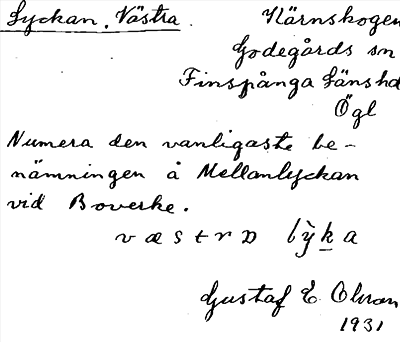 Lyckan, Västra. Kärnskogen
Godegårds sn
Finspånga länshd
Ögl
Numera den vanligaste be-
nämningen å Mellanlyckan
vid Boverke.
Gustaf E. Olson
1931